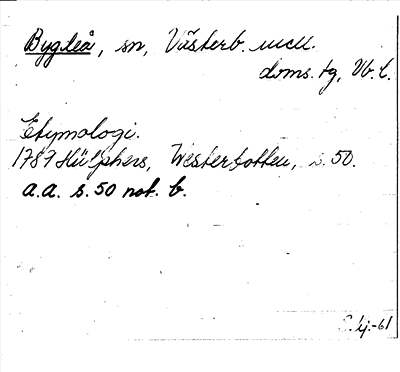 Bygdeå, sn, Västerb. mell.
doms.tg, Vb. l.
Etymologi.
1789 Hülphers, Westerbotten, s. 50.
a.a. s. 50 not. b.
-61